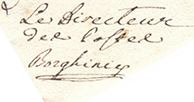 Le Directeur
des Postes
Borghines